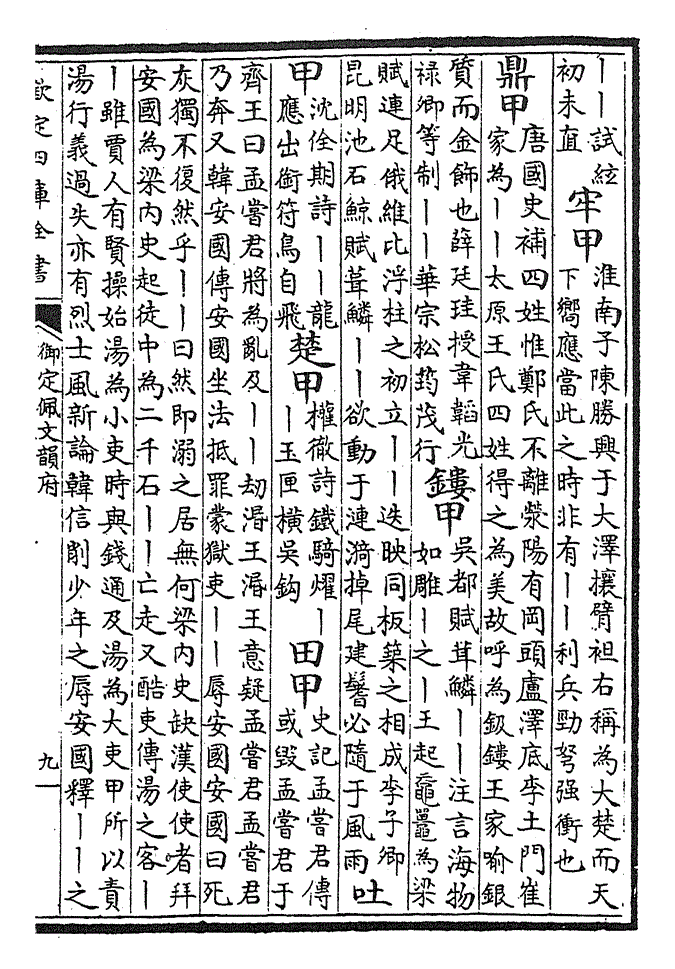 ——試紘
初未直
牢甲
淮南子陳勝興于大澤攘臂袒右稱為大楚而天
下嚮應當此之時非有——利兵勁弩强衝也
鼎甲
唐國史補四姓惟鄭氏不離滎陽有岡頭盧澤底李土門崔
家為——太原王氏四姓得之為美故呼為鈒鏤王家喻銀
質而金飾也薛廷珪授韋韜光
禄卿等制——華宗松筠茂行
鏤甲
吳都賦茸鱗——注言海物
如雕—之—王起黿鼉為梁
賦連足俄維比浮柱之初立——迭映同板築之相成李子卿
昆明池石鯨賦葺鱗——欲動于漣漪掉尾建鬐必隨于風雨
吐
甲
沈佺期詩——龍
應出銜符鳥自飛
楚甲
權徹詩鐵騎燿—
—玉匣橫吳鈎
田甲
史記孟嘗君傳
或毀孟嘗君于
齊王曰孟嘗君將為亂及——刼湣王湣王意疑孟嘗君孟嘗君
乃奔又韓安國傳安國坐法抵罪蒙獄吏——辱安國安國曰死
灰獨不復然乎——曰然即溺之居無何梁内史缺漢使使者拜
安國為梁内史起徒中為二千石——亡走又酷吏傳湯之客—
—雖賈人有賢操始湯為小吏時與錢通及湯為大吏甲所以責
湯行義過失亦有烈士風新論韓信削少年之辱安國釋——之
欽定四庫全書
御定佩文韻府
九